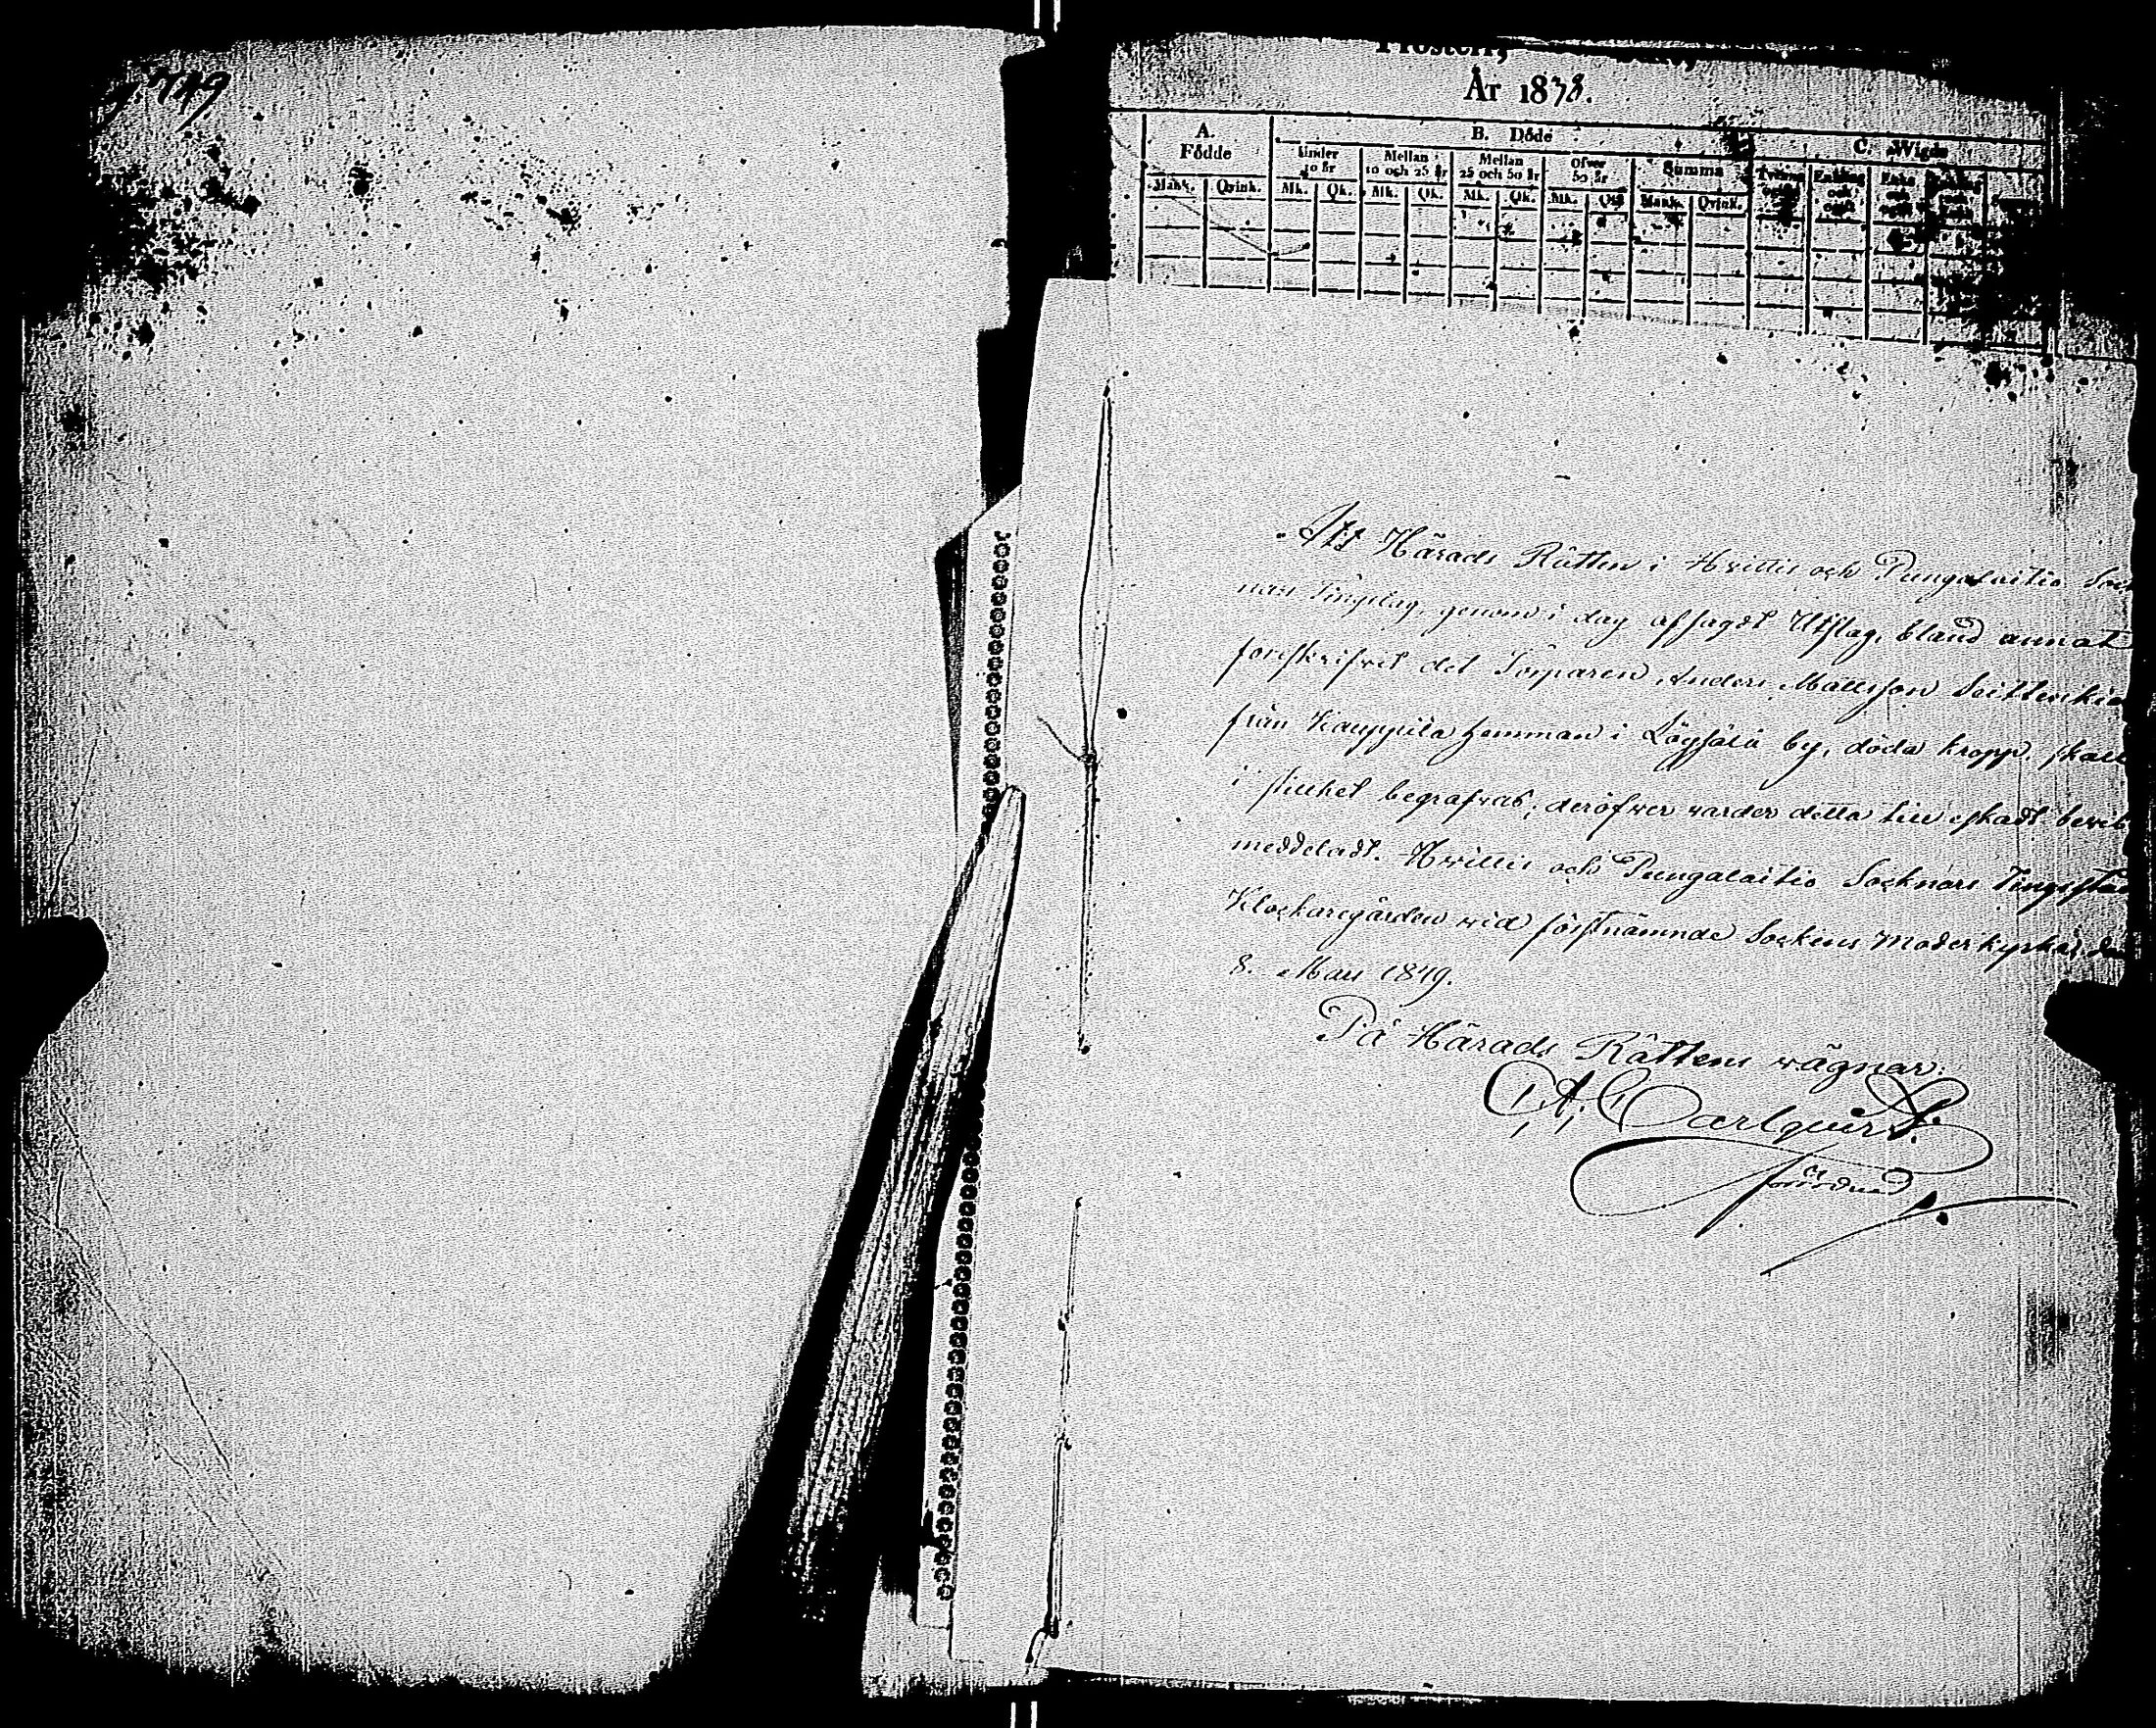 1849
År 1838.
A. Födde
B. Döde
C. Wigde
Under 10 år
Mellan 10 och 25 år
Mellan 25 och 50 år
Ofver 50 år
Summa
Mank. Qvink. Mk. Qk. Mk. Qk. Mk. Qk. Mk. Qk. Mank. Qvink.
Att Härads Rätten i Hvittis och Pungalaitio Sock
nars Tingslag, genom i dag afsagdt Utslag, bland annat
föreskrifvit det Torparen Anders Mattsson
från Kauppila hemman i Löysälä by, döda kropp, skall
i stillhet begrafvas; deröfver varder detta till
meddeladt. Hvittis och Pungalaitio Socknars Tingsstäl
Klockaregården vid förstnämnde Sockens Moderkyrka, den
8. Mars 1849.
På Härads Rättens vägnar:
Carlquist.